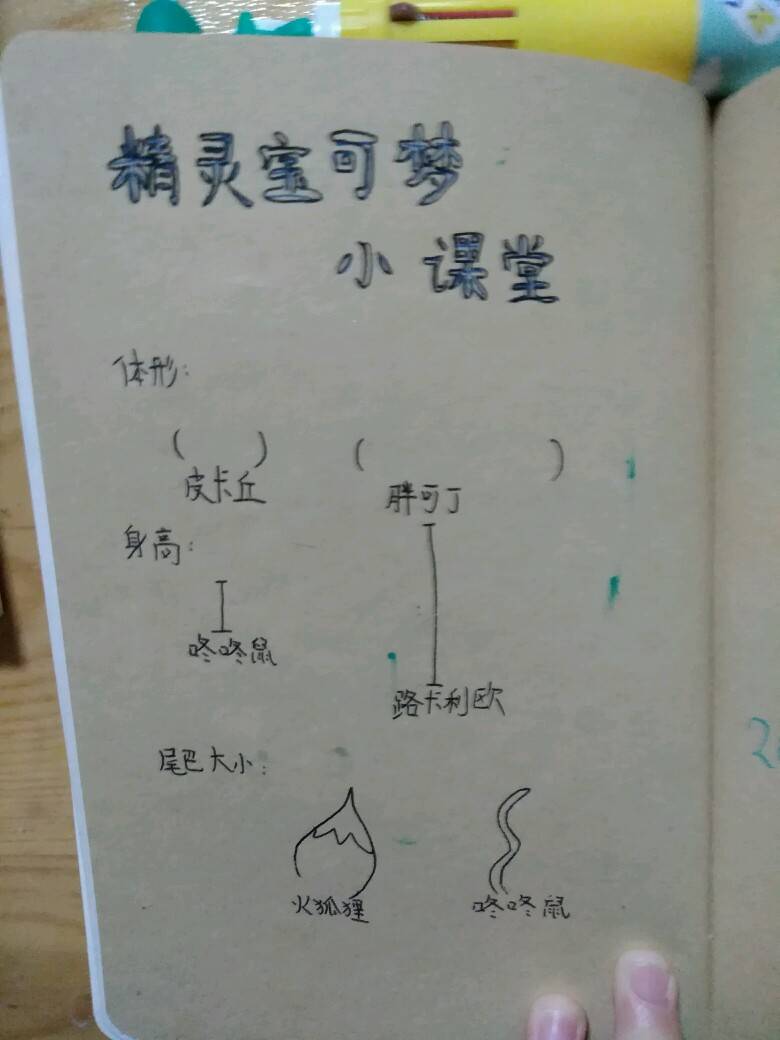 精灵宝可梦
小课堂
体形:
( ) ( )
皮卡丘 胖可丁
身高:
咚咚鼠
路卡利欧
尾巴大小:
火狐狸 咚咚鼠